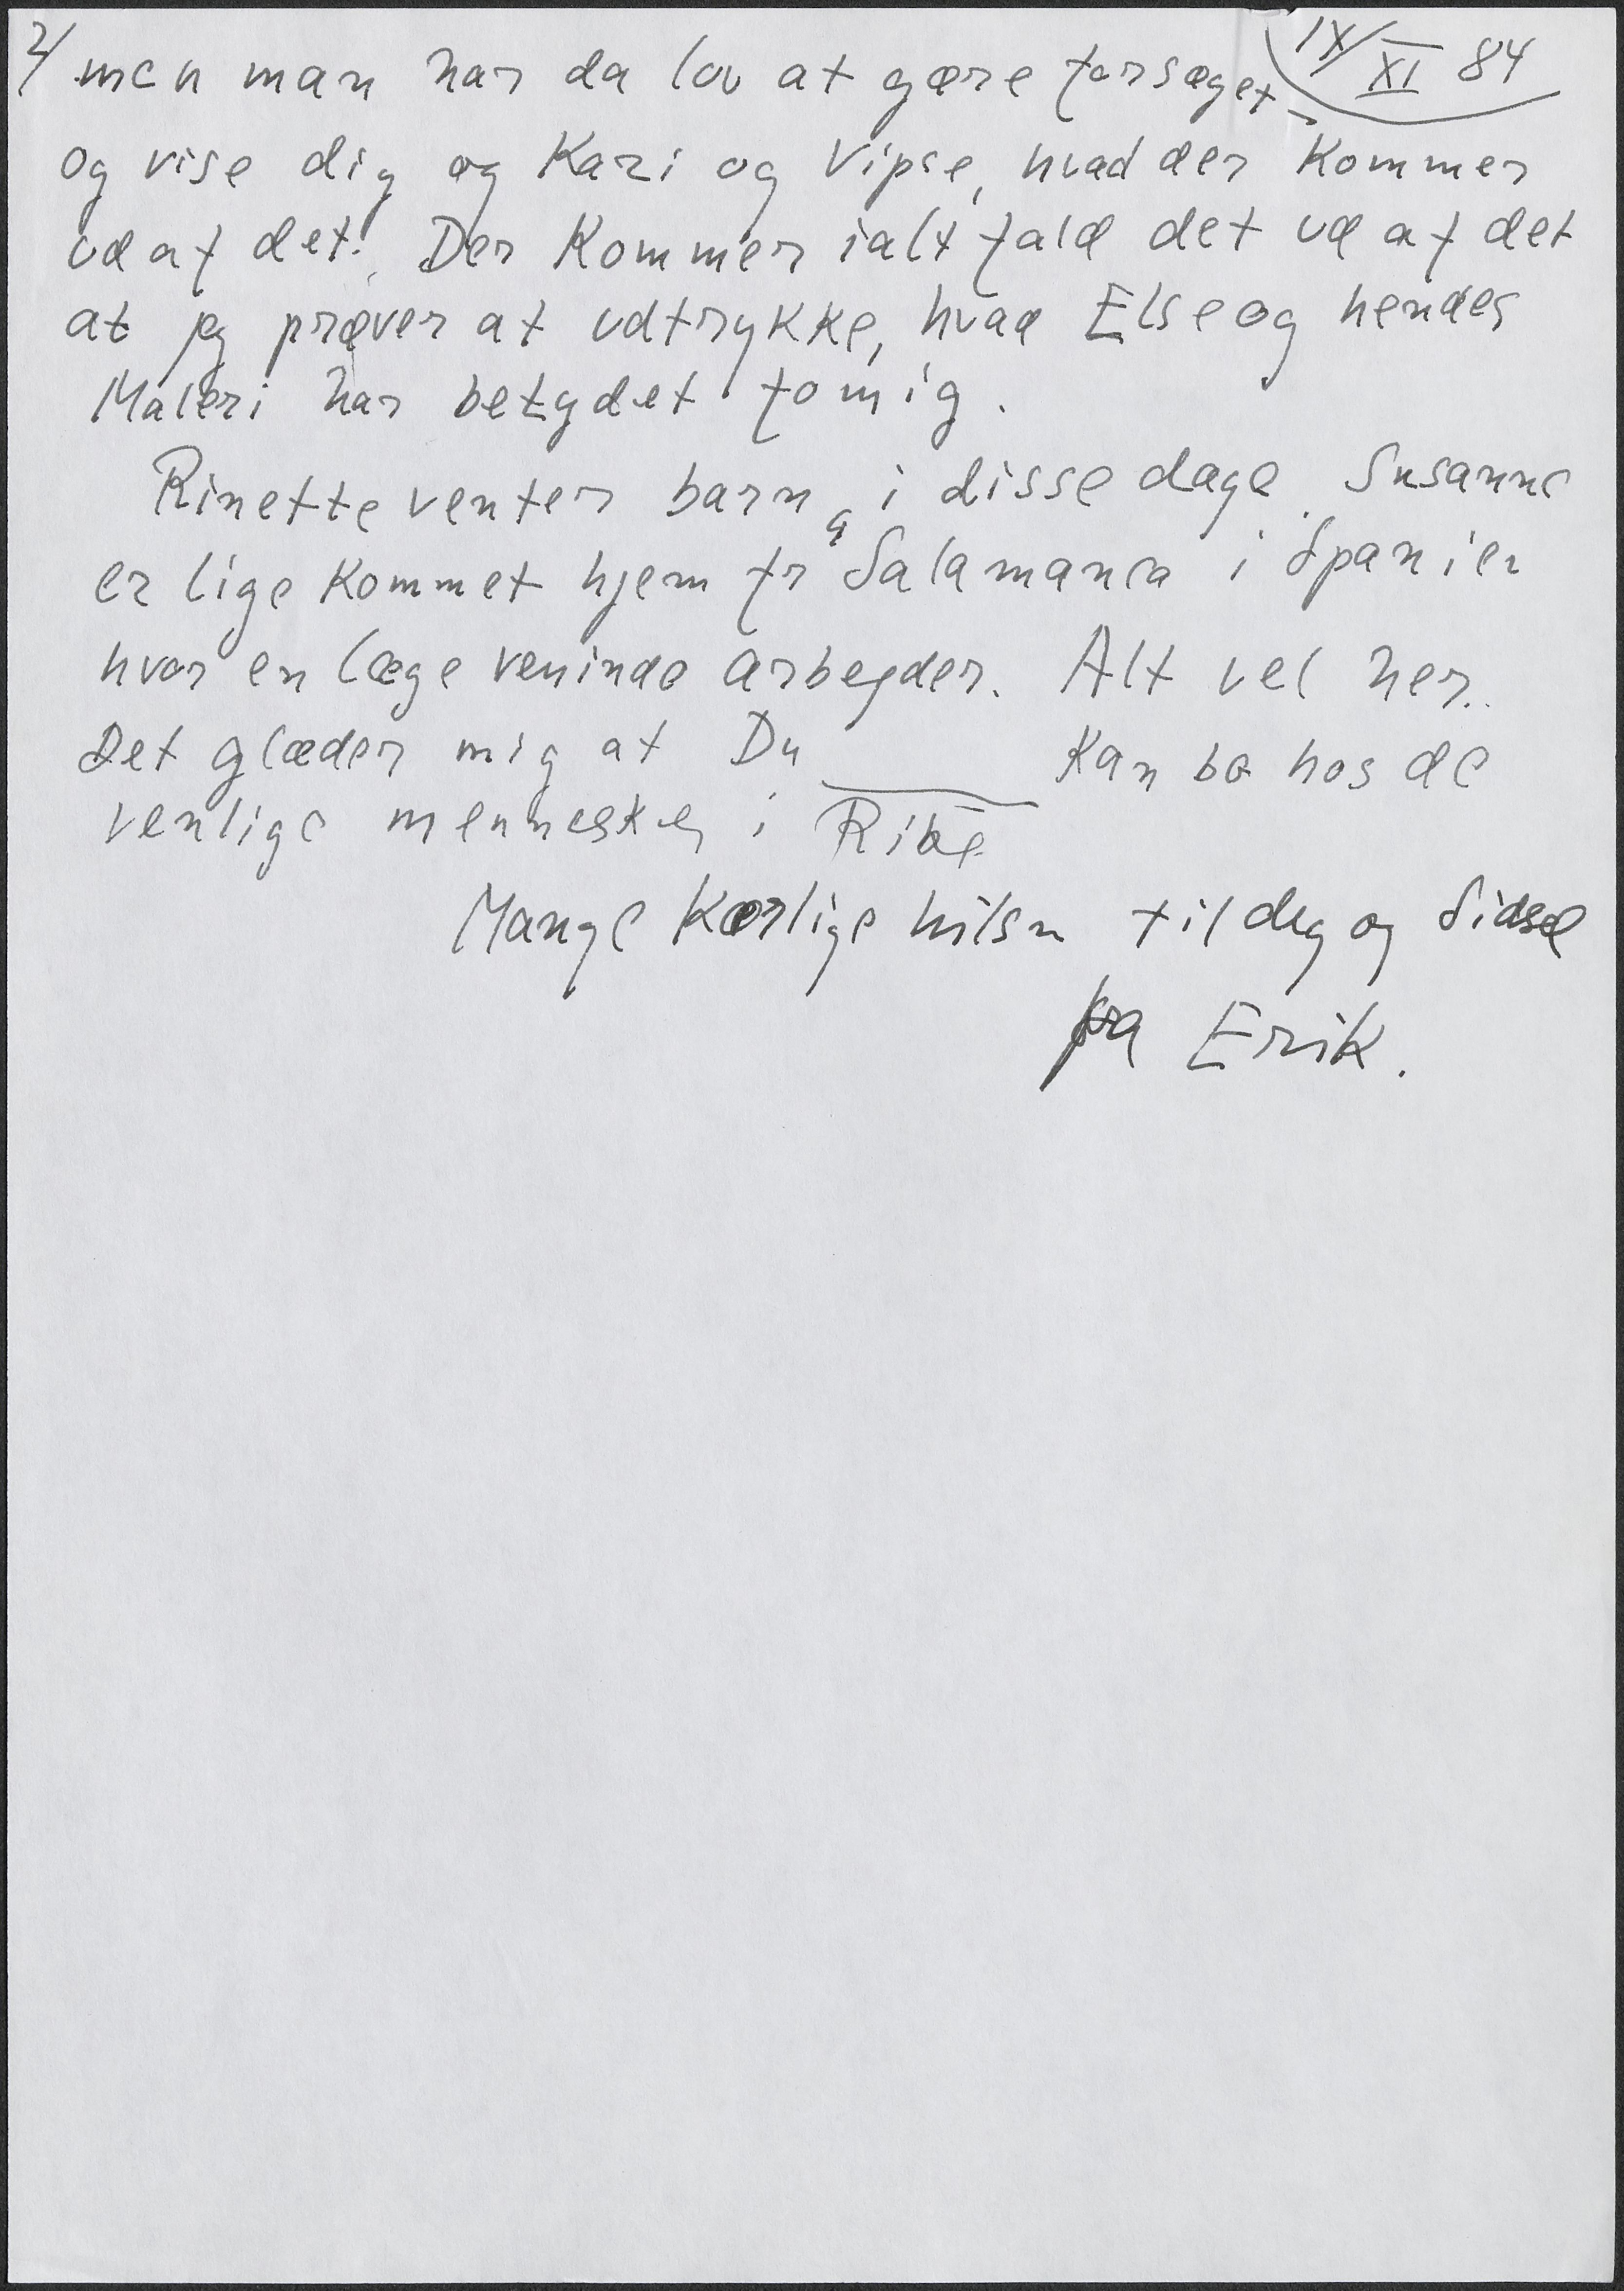 2/ men man har da lov at gøre forsøget - IX/XI 84
og vise dig og Kari og Vipse, hvad der kommer
ud af det! Der kommer ialtfald det ud af det
at jeg prøver at udtrykke, hvad Else og hendes
Maleri har betydet fo mig.
Rinette venter barn i disse dage. Susanne
er lige kommet hjem fra Salamanca i Spanien
hvor en læge veninde arbejder. Alt vel her.
Det glæder mig at Du kan bo hos de
venlige mennesker i Ribe
Mange kærlige hilsn til dig og Sidsel
fra Erik.